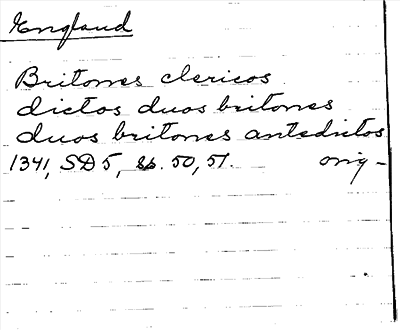 England
Britones clericos
dictos duos britones
duos britones antedictos
1341, SD5, 50, 51. orig-